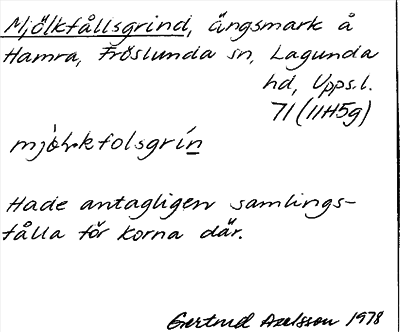 Mjölkfållsgrind, ängsmark å
Hamra, Fröslunda sn, Lagunda
hd, Upps.l.
71 (11H5g)
mjö̀ḷkfolsgrín
Hade antagligen samlings-
fålla för korna där.
Gertrud Axelsson 1978